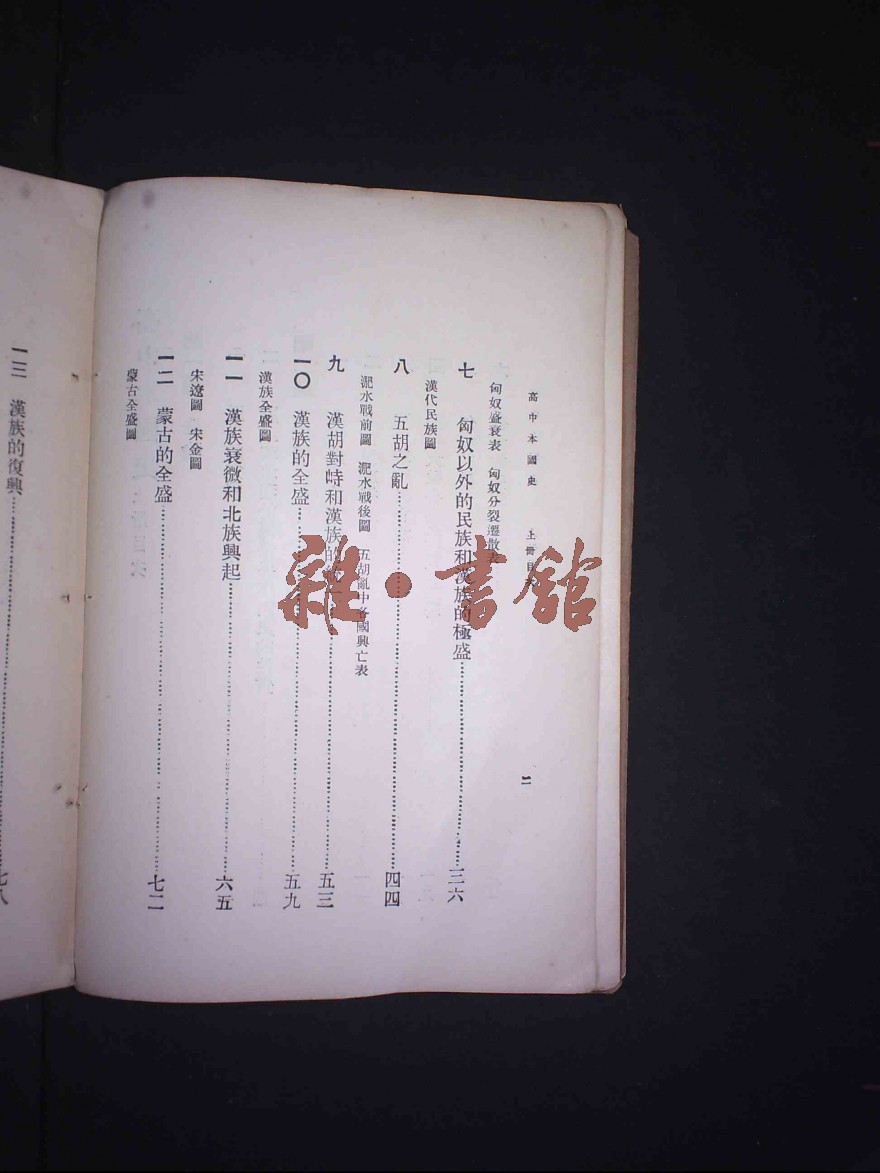 高中本國史　上冊目
二
匈奴盛衰表　匈奴分裂遷散表
七　匈奴以外的民族和漢族的極盛……三六
漢代民族圖
八　五胡之亂……四四
淝水戰前圖　淝水戰後圖　五胡亂中各國興亡表
九　漢胡對峙和漢族的……五三
一〇　漢族的全盛……五九
漢族全盛圖
一一　漢族衰微和北族興起……六五
宋遼圖　宋金圖
一二　蒙古的全盛……七二
蒙古全盛圖
一三　漢族的復興……七八
雜·書館